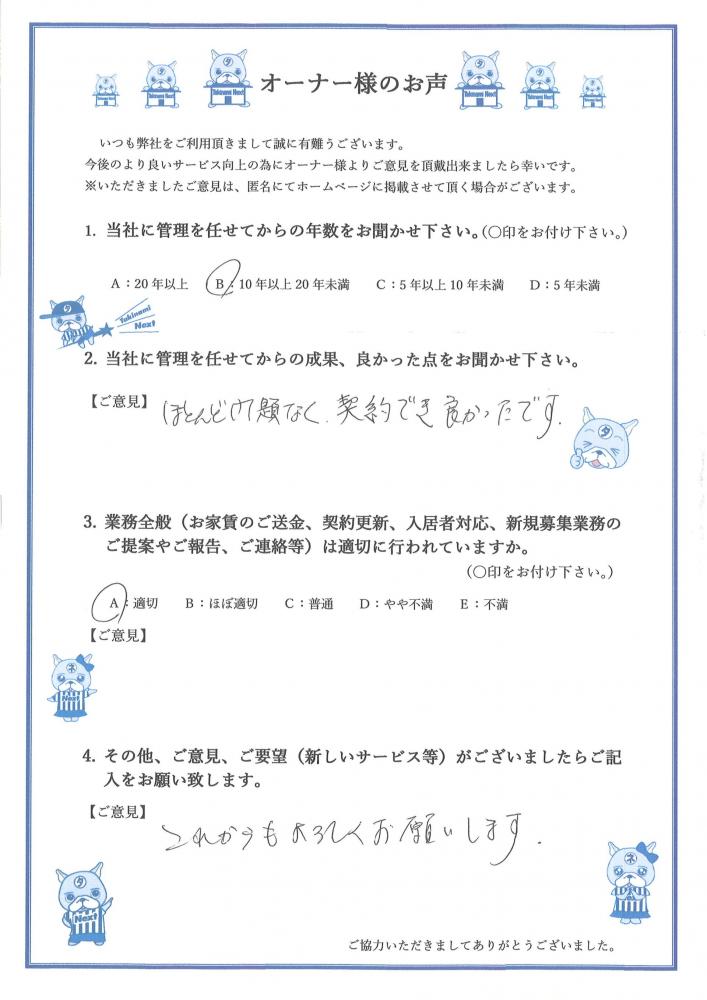 オーナー様のお声
Takinami Next
Takinami Next
Takinami Next
Takinami Next
Takinami Next
Takinami Next
いつも弊社をご利用頂きまして誠に有難うございます。
今後のより良いサービス向上の為にオーナー様よりご意見を頂戴出来ましたら幸いです。
※いただきましたご意見は、匿名にてホームページに掲載させて頂く場合がございます。
1. 当社に管理を任せてからの年数をお聞かせ下さい。（〇印をお付け下さい。）
A：20年以上 B：10年以上20年未満 C：5年以上10年未満 D：5年未満
タ
Takinami
Next
2. 当社に管理を任せてからの成果、良かった点をお聞かせ下さい。
【ご意見】 ほとんど問題なく、契約でき良かったです.
タ
3. 業務全般（お家賃のご送金、契約更新、入居者対応、新規募集業務の
ご提案やご報告、ご連絡等）は適切に行われていますか。
（〇印をお付け下さい。）
A：適切 B：ほぼ適切 C：普通 D：やや不満 E：不満
【ご意見】
ネ
Next
4. その他、ご意見、ご要望（新しいサービス等）がございましたらご記
入をお願い致します。
【ご意見】 これからもよろしくお願いします.
タ
Next
ネ
ご協力いただきましてありがとうございました。